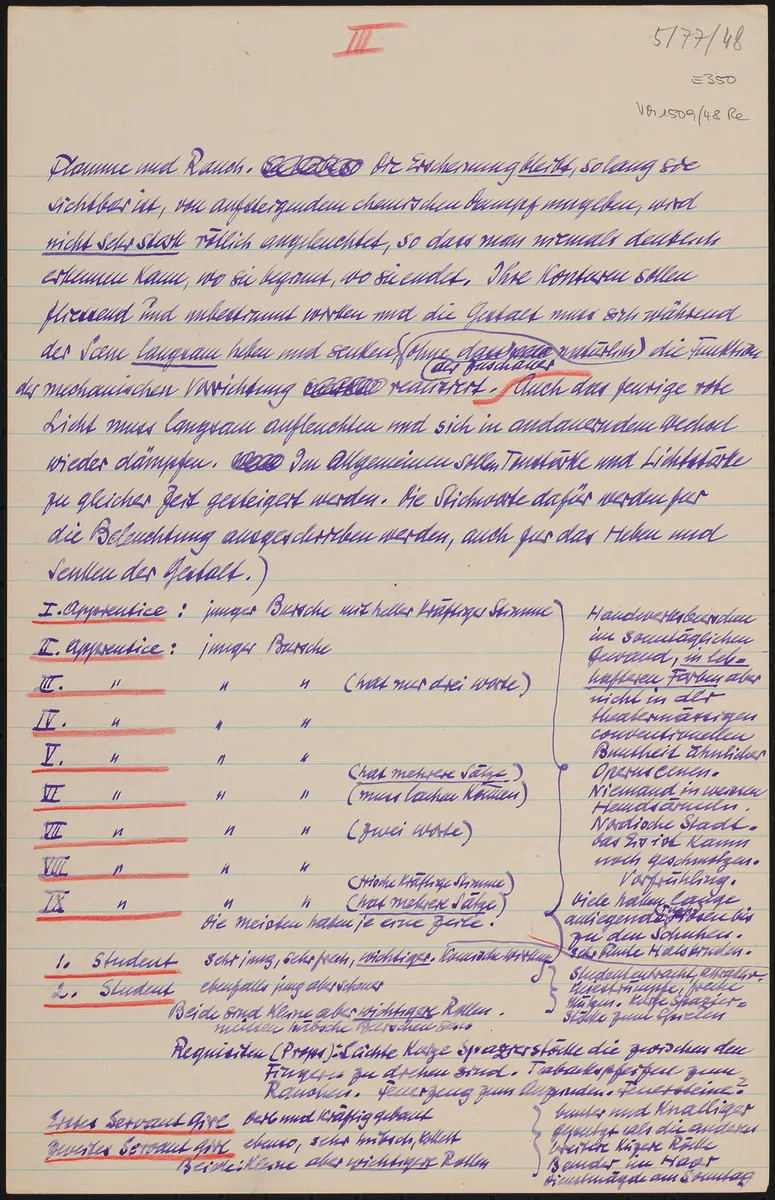 III
5/77/48
E350
VA 1509/48 Re
Flamme und Rauch. Die Erscheinung bleibt, solang sie
sichtbar ist, von aufsteigendem chemischen Dampf umgeben, wird
nicht sehr stark rötlich angeleuchtet, so dass man niemals deutlich
erkennen kann, wo sie beginnt, wo sie endet. Ihre Konturen sollen
fliessend und unbestimmt wirken und die Gestalt muss sich während
der Scene langsam heben und senken (ohne dass natürlich) die Funktion
der Zuschauer
der mechanischen Vorrichtung realisiert. Auch das feurige rote
Licht muss langsam aufleuchten und sich in andauerndem Wechsel
wieder dämpfen. Im Allgemeinen sollen Tonstärke und Lichtstärke
zu gleicher Zeit gesteigert werden. Die Stichworte dafür werden fur
die Beleuchtung ausgeschrieben werden, auch fur das Heben und
Senken der Gestalt.)
I. Apprentice: junger Bursche mit heller kräftiger Stimme
II. Apprentice: junger Bursche
III. " " " (hat nur drei worte)
IV. " " "
V. " " "
(hat mehrere Sätze)
VI " " " (muss lachen können)
VII " " " (zwei worte)
VIII "
(frische kräftige Stimme)
IX " " " (hat mehrere Sätze)
Die meisten haben je eine Zeile.
Handwerksburschen
im sonntäglichen
Gewand, in leb-
hafteren Farben aber
nicht in der
theatermässigen
conventionellen
Buntheit ähnlicher
Opernscenen.
Niemand in weissen
Hemdsärmeln.
Nordische Stadt.
Das Eis ist kaum
noch geschmolzen.
Vorfrühling.
Viele haben lange
anliegende Hosen bis
zu den Schuhen.
Sehr bunte Halsbinden.
1. Student sehr jung, sehr frech, wichtiger. Komische wirken
2. Student ebenfalls jung aber scheuer
Beide sind kleine aber wichtigere Rollen.
müssen hübsche Burschen sein.
Studententracht,
Kniestrümpfe, freche
Mützen. Kurze Spazier-
stöcke zum Spielen
Requisiten (Props): Leichte kurze Spazierstöcke die zwischen den
Fingern zu drehen sind. Tabakspfeifen zum
Rauchen. Feuerzeug zum Anzünden. Feuersteine?
Erstes Servant Girl derb und kräftig gebaut
Zweites Servant Girl ebenso, sehr hübsch, kokett
Beide: Kleine aber wichtigere Rollen
bunter und knalliger
geputzt als die anderen
breitere kürzere Röcke
Bänder im Haar
Dienstmägde am Sonntag